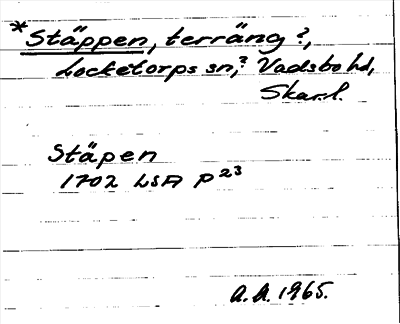 *Stäppen, terräng?,
Locketorps sn,? Vadsbo hd,
Skar.l.
Stäpen
1702 LSA P 23
A.A. 1965.